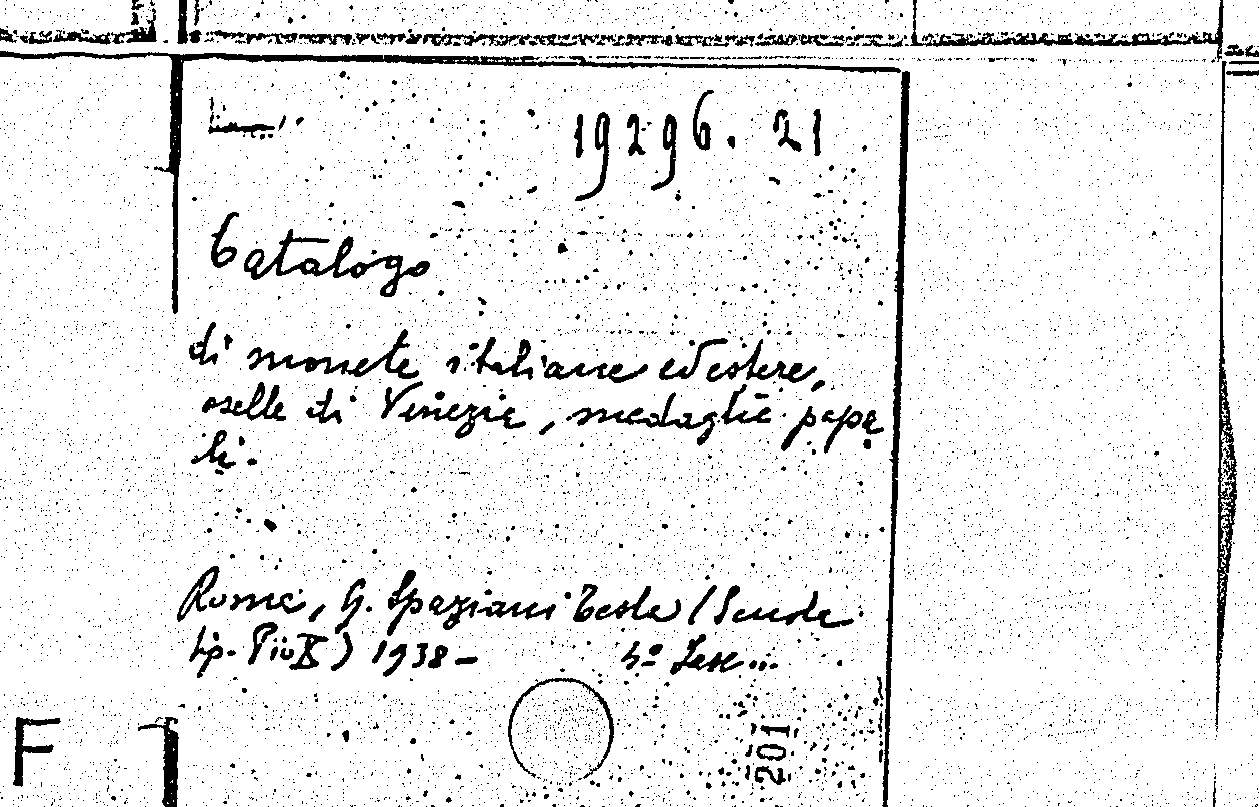 19296. 21
Catalogo
di monete italiane ed estere,
oselle di Venezia, medaglie papa
li.
Roma, G. Spaziani Testa (Scuola
tip. Pio X) 1938 –
201
F